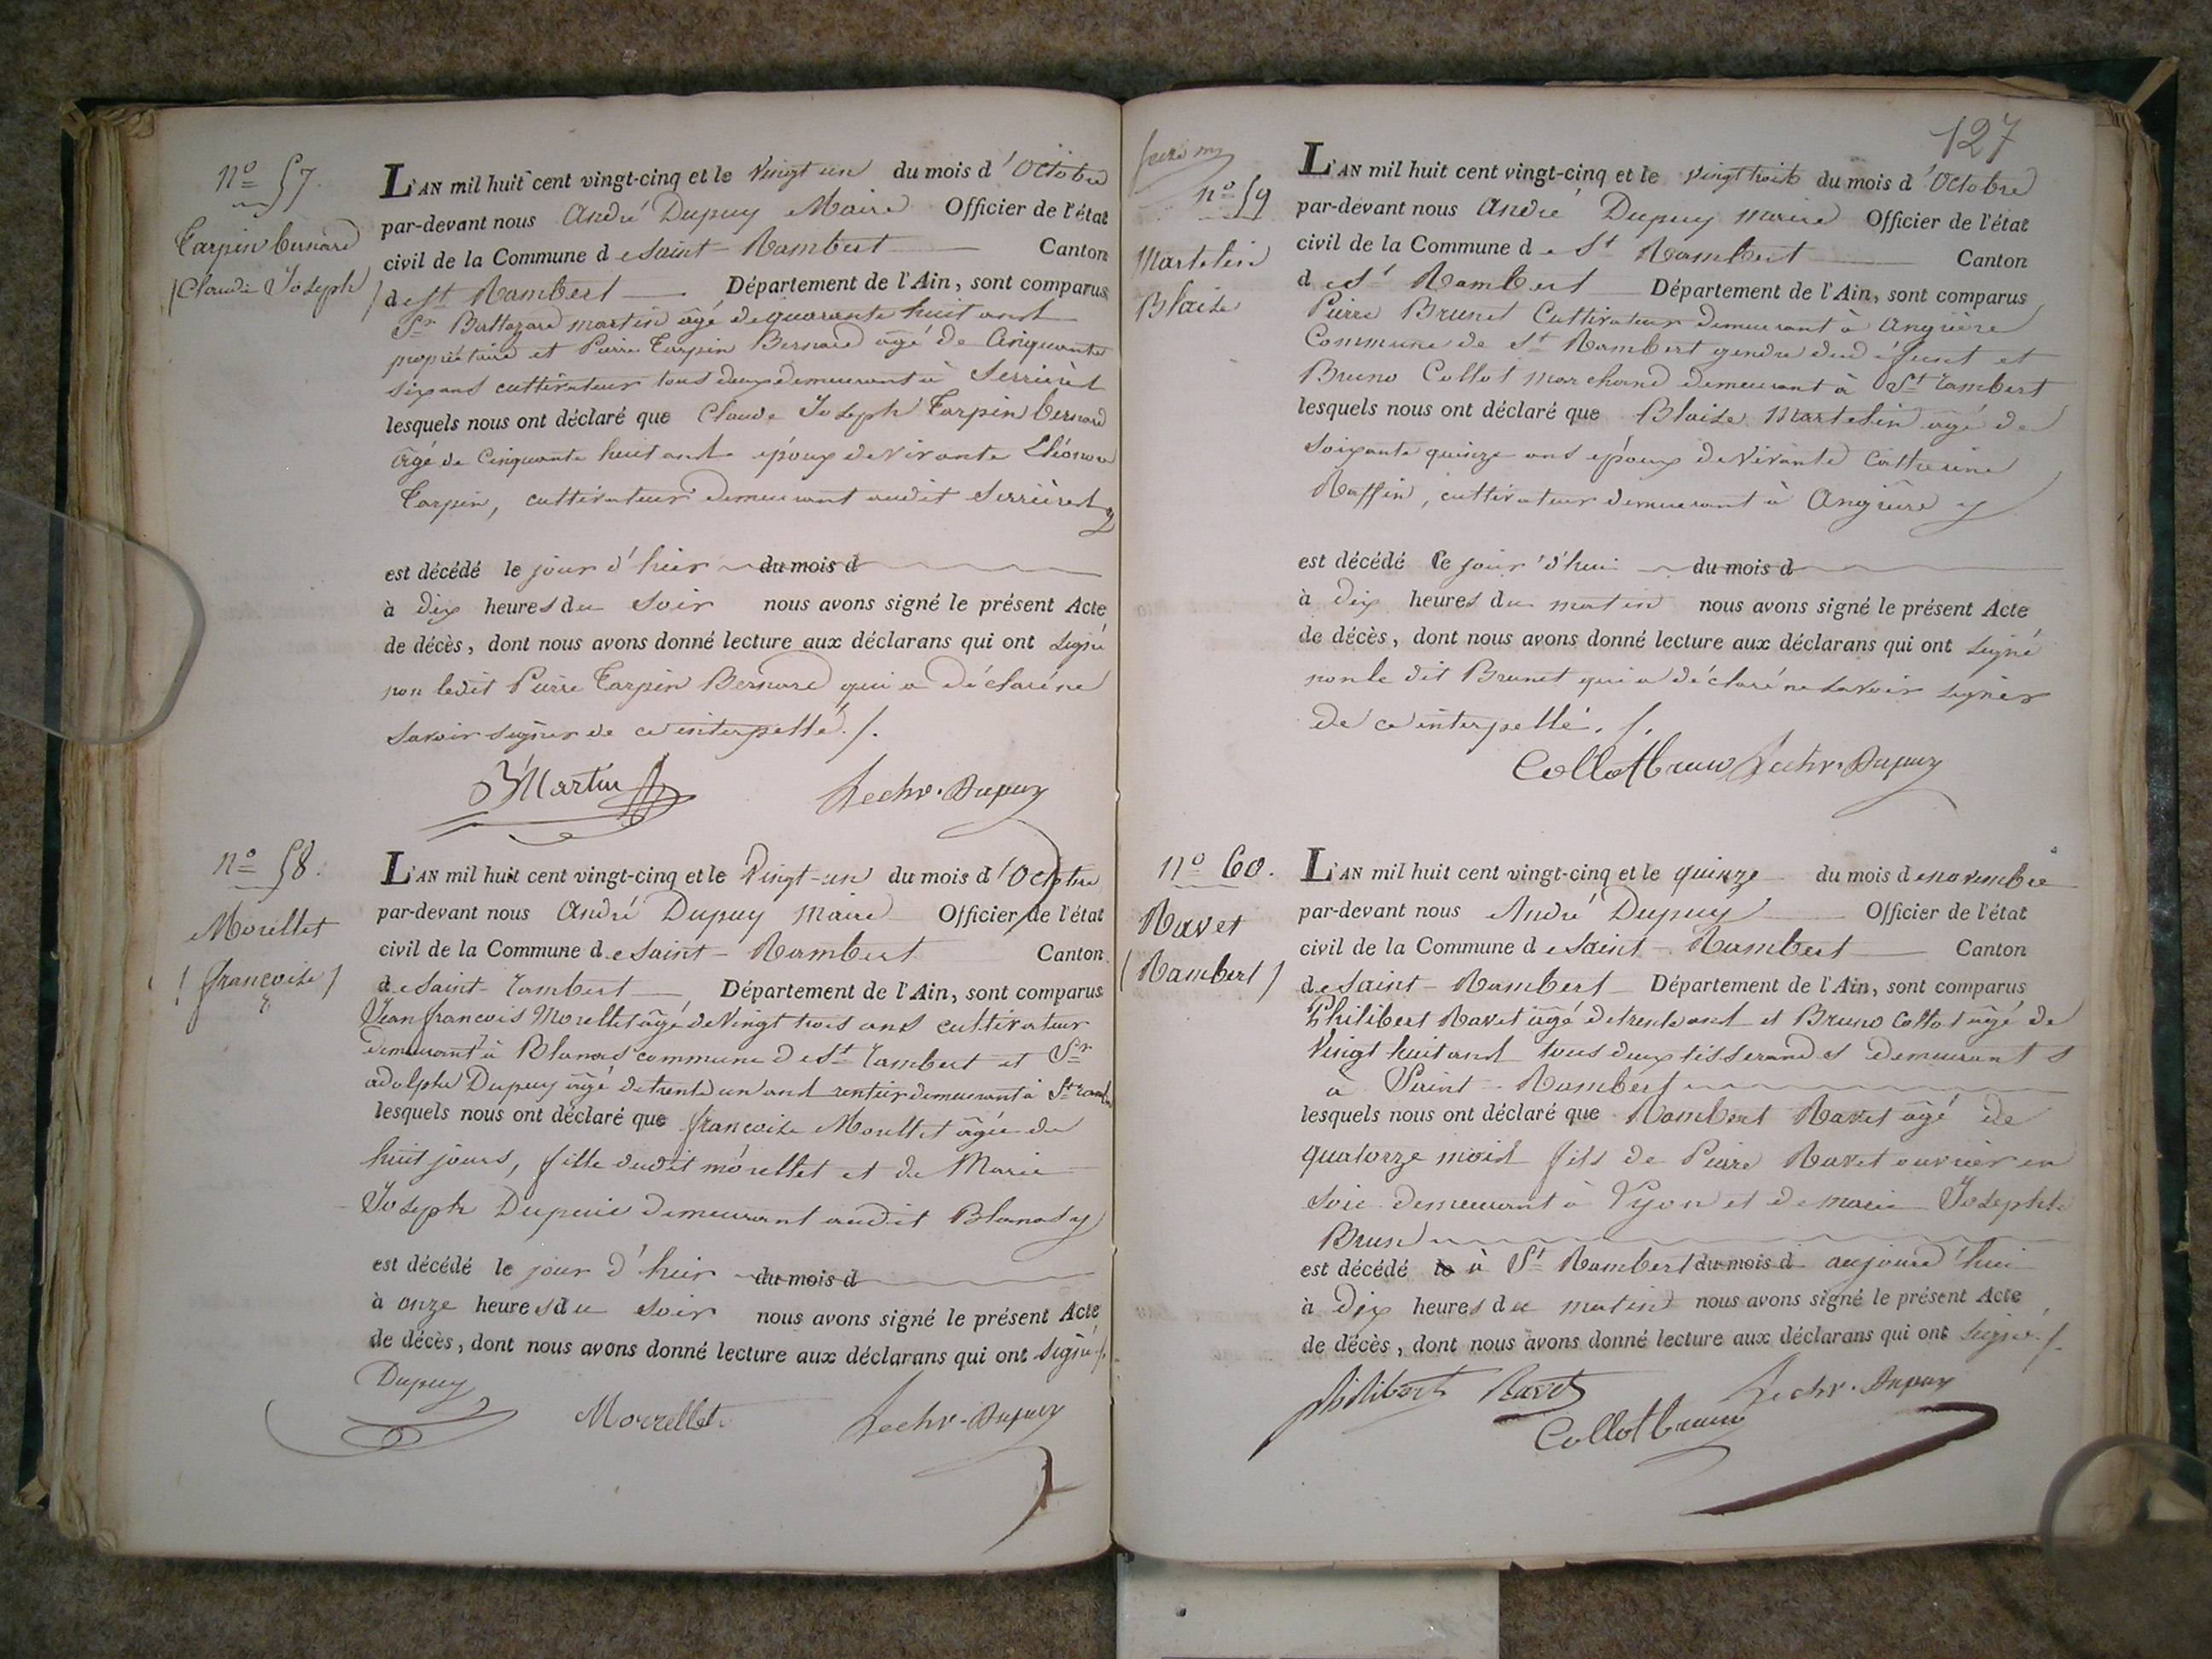 nº 57.
Tarpin bernard
(Claude Joseph)
L'AN mil huit cent vingt-cinq et le vingt un du mois d'Octobre
par-devant nous André Dupuy Maire Officier de l'état
civil de la Commune de Saint-Rambert Canton
de St Rambert Département de l'Ain, sont comparus
Sr Baltazard martin âgé de quarante huit ans
propriétaire et Pierre Tarpin Bernard âgé de Cinquante
six ans cultivateur tous deux demeurant à Serrières
lesquels nous ont déclaré que Claude Joseph Tarpin bernard
âgé de Cinquante huit ans époux de vivante Eléonore
Tarpin, cultivateur demeurant audit Serrières
est décédé le jour d'hier du mois d
à dix heures du soir nous avons signé le présent Acte
de décès, dont nous avons donné lecture aux déclarans qui ont signé
non ledit Pierre Tarpin Bernard qui a déclaré ne
savoir signer de ce interpellé ./.
B Martin Lechr. Dupuy
nº 58.
Morellet
(françoise)
L'AN mil huit cent vingt-cinq et le Vingt-un du mois d'Octobre
par-devant nous André Dupuy Maire Officier de l'état
civil de la Commune de Saint-Rambert Canton
de Saint-rambert Département de l'Ain, sont comparus
Jean françois Morellet âgé de Vingt trois ans cultivateur
demeurant à Blanas commune de St rambert et Sr
adolphe Dupuy âgé de trente un ans rentier demeurant à St ramb
lesquels nous ont déclaré que françoise Morellet âgée de
huit jours, fille dudit morellet et de Marie
Joseph Dupuis demeurant audit Blanas
est décédé le jour d'hier du mois d
à onze heures du soir nous avons signé le présent Acte
de décès, dont nous avons donné lecture aux déclarans qui ont signé ./.
Dupuy Morrellet. Lechr. Dupuy
127
nº 59
Martelin
Blaise
L'AN mil huit cent vingt-cinq et le vingt trois du mois d'Octobre
par-devant nous André Dupuy maire Officier de l'état
civil de la Commune de St Rambert Canton
de St Rambert Département de l'Ain, sont comparus
Pierre Brunet Cultivateur demeurant à Angrière
Commune de St Rambert gendre dud défunt et
Bruno Collot marchand demeurant à St rambert
lesquels nous ont déclaré que Blaise Martelin âgé de
soixante quinze ans époux de Vivante Catherine
Raffin, cultivateur demeurant à Angrière
est décédé ce jour d'hui du mois d
à dix heures du matin nous avons signé le présent Acte
de décès, dont nous avons donné lecture aux déclarans qui ont signé
non le dit Brunet qui a déclaré ne savoir signer
de ce interpellé. /.
Collot bruno Lechr. Dupuy
nº 60.
Ravet
(Rambert)
L'AN mil huit cent vingt-cinq et le quinze du mois de novembre
par-devant nous André Dupuy Officier de l'état
civil de la Commune de Saint-Rambert Canton
de Saint-Rambert Département de l'Ain, sont comparus
Philibert Ravet âgé de trente ans et Bruno Collot âgé de
Vingt huit ans tous deux tisserands demeurants
à Saint-Rambert
lesquels nous ont déclaré que Rambert Ravet âgé de
quatorze mois fils de Pierre Ravet ouvrier en
soie demeurant à Lyon et de marie Josephte
Brun
est décédé le à St Rambert du mois d aujourd'hui
à dix heures du matin nous avons signé le présent Acte
de décès, dont nous avons donné lecture aux déclarans qui ont signé ./.
philibert Ravet Lechr. Dupuy
Collot bruno